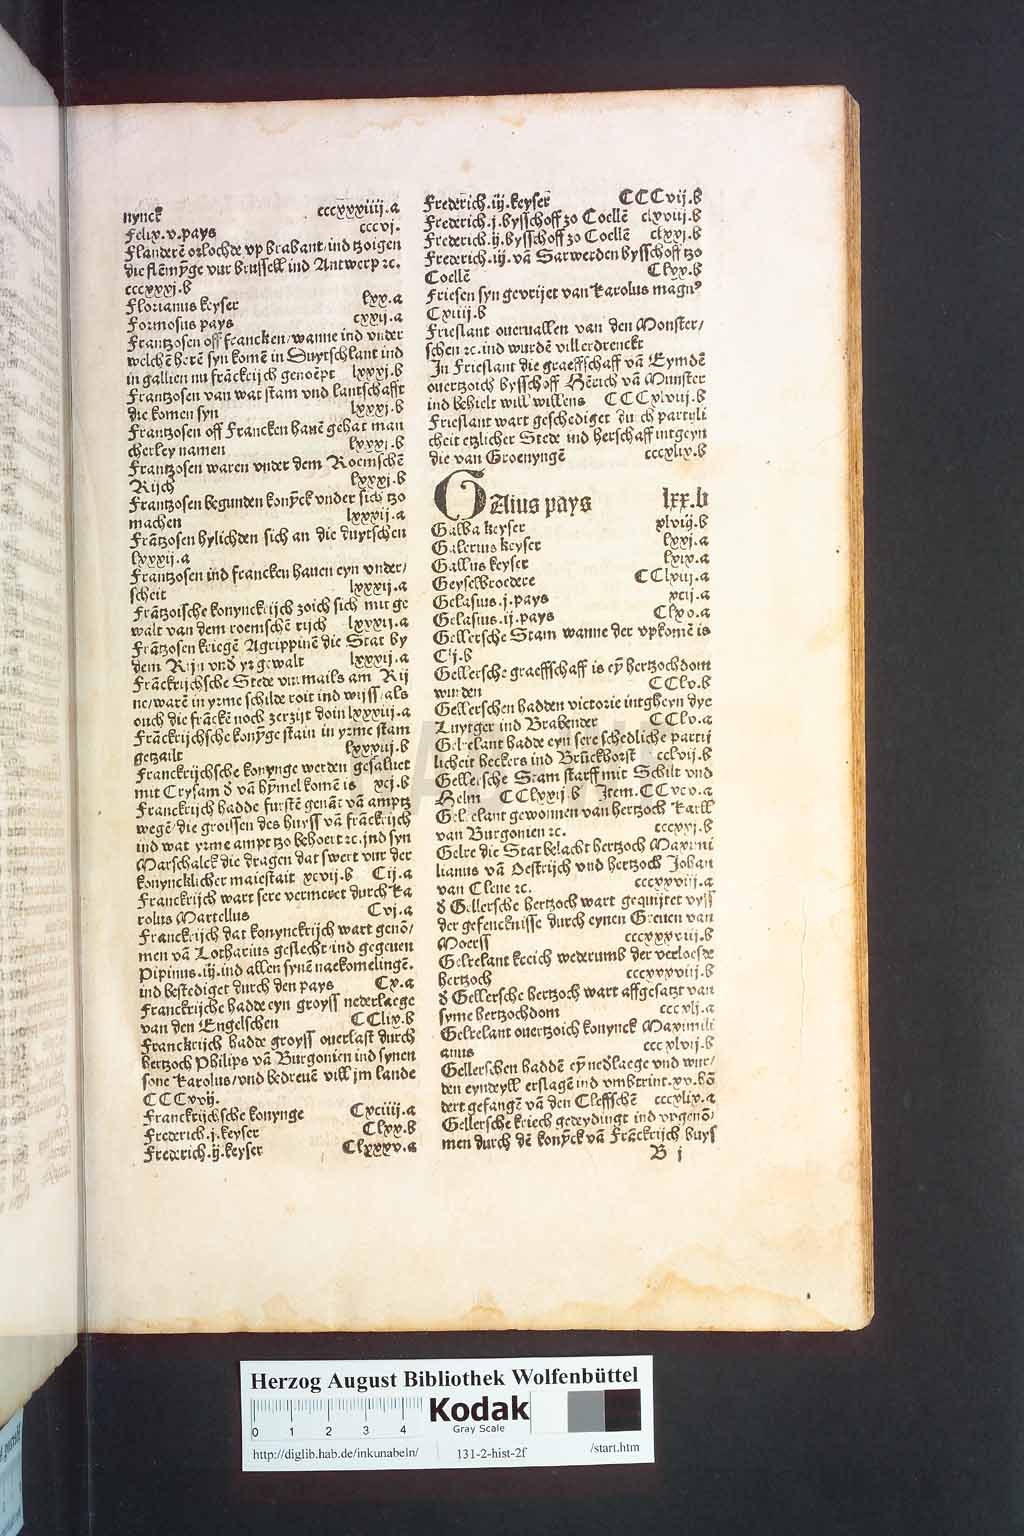 nynck cccxxxiiij.a
Felix.v.pays cccvj.
Flanderē orlochde vp brabant/ind tzoigen
die flēmỹge vur brussell ind Antwerp ⁊c.
cccxxxj.b
Florianus keyser lxx.a
Formosus pays cxxij.a
Frantzosen off francken/wanne ind vnder
welchē herē syn komē in Duytschlant ind
in gallien nu frāckrijch genoēpt lxxxj.b
Frantzosen van wat stam vnd lantschafft
die komen syn lxxxj.b
Frantzosen off Francken hauē gehat man
cherley namen lxxxj.b
Frantzosen waren vnder dem Roemschē
Rijch lxxxj.b
Frantzosen begunden konỹck vnder sich tzo
machen lxxxij.a
Frātzosen bylichden sich an die duytschen
lxxxij.a
Frantzosen ind francken hauen eyn vnder/
scheit lxxxij.a
Frātzoische konynckrijch zoich sich mit ge
walt van dem roemschē rijch lxxxij.a
Frātzosen kriegē Agrippinē die Stat by
dem Rijn vnd yr gewalt lxxxij.a
Frāckrijchsche Stede vurmails am Rij
ne/warē in yrme schilde roit ind wijss/als
ouch die frāckē noch zerzijt doin lxxxiij.a
Frāckrijchsche konỹge stain in yrme stam
getzailt lxxxiij.b
Franckrijchsche konynge werden gesaluet
mit Crysam ꝺ vā hỹmel komē is xcj.b
Franckrijch hadde furstē genāt vā amptz
wegē/die groissen des huyss vā frāckrijch
ind wat yrme ampt tzo behoert ⁊c.ind syn
Marschalck die dragen dat swert vur der
konyncklicher maiestait xcvij.b Cij.a
Franckrijch wart sere vermeret durch Ka
rolus Martellus Cvj.a
Franckrijch dat konynckrijch wart genō/
men vā Lotharius geslecht/ind gegeuen
Pipinus.iij.ind allen synē naekomelingē.
ind bestediget durch den pays Cx.a
Franckrijche hadde eyn groyss nederlaege
van den Engelschen CClix.b
Franckrijch hadde groyss ouerlast durch
hertzoch Philips vā Burgonien ind synen
sone Karolus/vnd bedreuē vill jm lande
CCCxvij.
Franckrijchsche konynge Cxciiij.a
Frederich.j.keyser Clxx.b
Frederich.ij.keyser Clxxxv.a
Frederich.iij.keyser CCCvij.b
Frederich.j.bysschoff zo Coellē clxviij.b
Frederich.ij.bysschoff zo Coellē clxxj.b
Frederich.iij.vā Sarwerden bysschoff tzo
Coellē Clxx.b
Friesen syn gevrijet van Karolus magnꝰ
Cxiiij.b
Frieslant oueruallen van den Monster/
schen ⁊c.ind wurdē vill erdrenckt
In Frieslant die graeffschaff vā Eymdē
ouertzoich bysschoff Hērich vā Munster
ind behielt will willens CCCxlviij.b
Frieslant wart geschediget durch partijli
cheit etzlicher Stede ind herschaff intgeyn
die van Groenyngē cccxlix.b
GAius pays lxx.b
Galba keyser xlviij.b
Galerius keyser lxxj.a
Gallus keyser lxix.a
Geyselbroedere CClxiij.a
Gelasius.j.pays xcij.a
Gelasius.ij.pays Clxv.a
Gellersche Stam wanne der vpkomē is
Cij.b
Gellersche graeffschaff is eỹ hertzochdom
wurden CCLv.b
Gellerschen hadden victorie intgheyn dye
Luytger ind Brabender CCLv.a
Gelrelant hadde eyn sere schedliche partij
licheit heckers ind Brūckhorst cclvij.b
Gellersche Stam starff mit Schilt vnd
Helm CClxxij.b Item.CCxcv.a
Gelrelant gewonnen van hertzoch Karll
van Burgonien ⁊c. cccxxj.b
Gelre die Stat belacht hertzoch Maximi
lianus vā Oestrijch vnd hertzoch Johan
van Cleue ⁊c. cccxxviij.a
ꝺ Gellersche hertzoch wart gequijtet vyss
der gefencknisse durch eynen Greuen van
Moerss cccxxxviij.b
Gelrelant kreich wederumb der verloesde
hertzoch cccxxxviij.b
ꝺ Gellersche hertzoch wart affgesatzt van
syme hertzochdom cccxlj.a
Gelrelant ouertzoich konynck Maximili
anus cccxlvij.b
Gellerschen haddē eỹ nedlaege vnd wur/
den eyndeyll erslagē ind vmbtrint.xv.hō
dert gefangē vā den Cleffschē cccxlix.a
Gellersche kriech gedeydingt ind vpgenō/
men durch dē konỹck vā Frāckrijch huys
B j
Herzog August Bibliothek Wolfenbüttel
0 1 2 3 4
Kodak
Gray Scale
http://diglib.hab.de/inkunabeln/ 131-2-hist-2f /start.htm